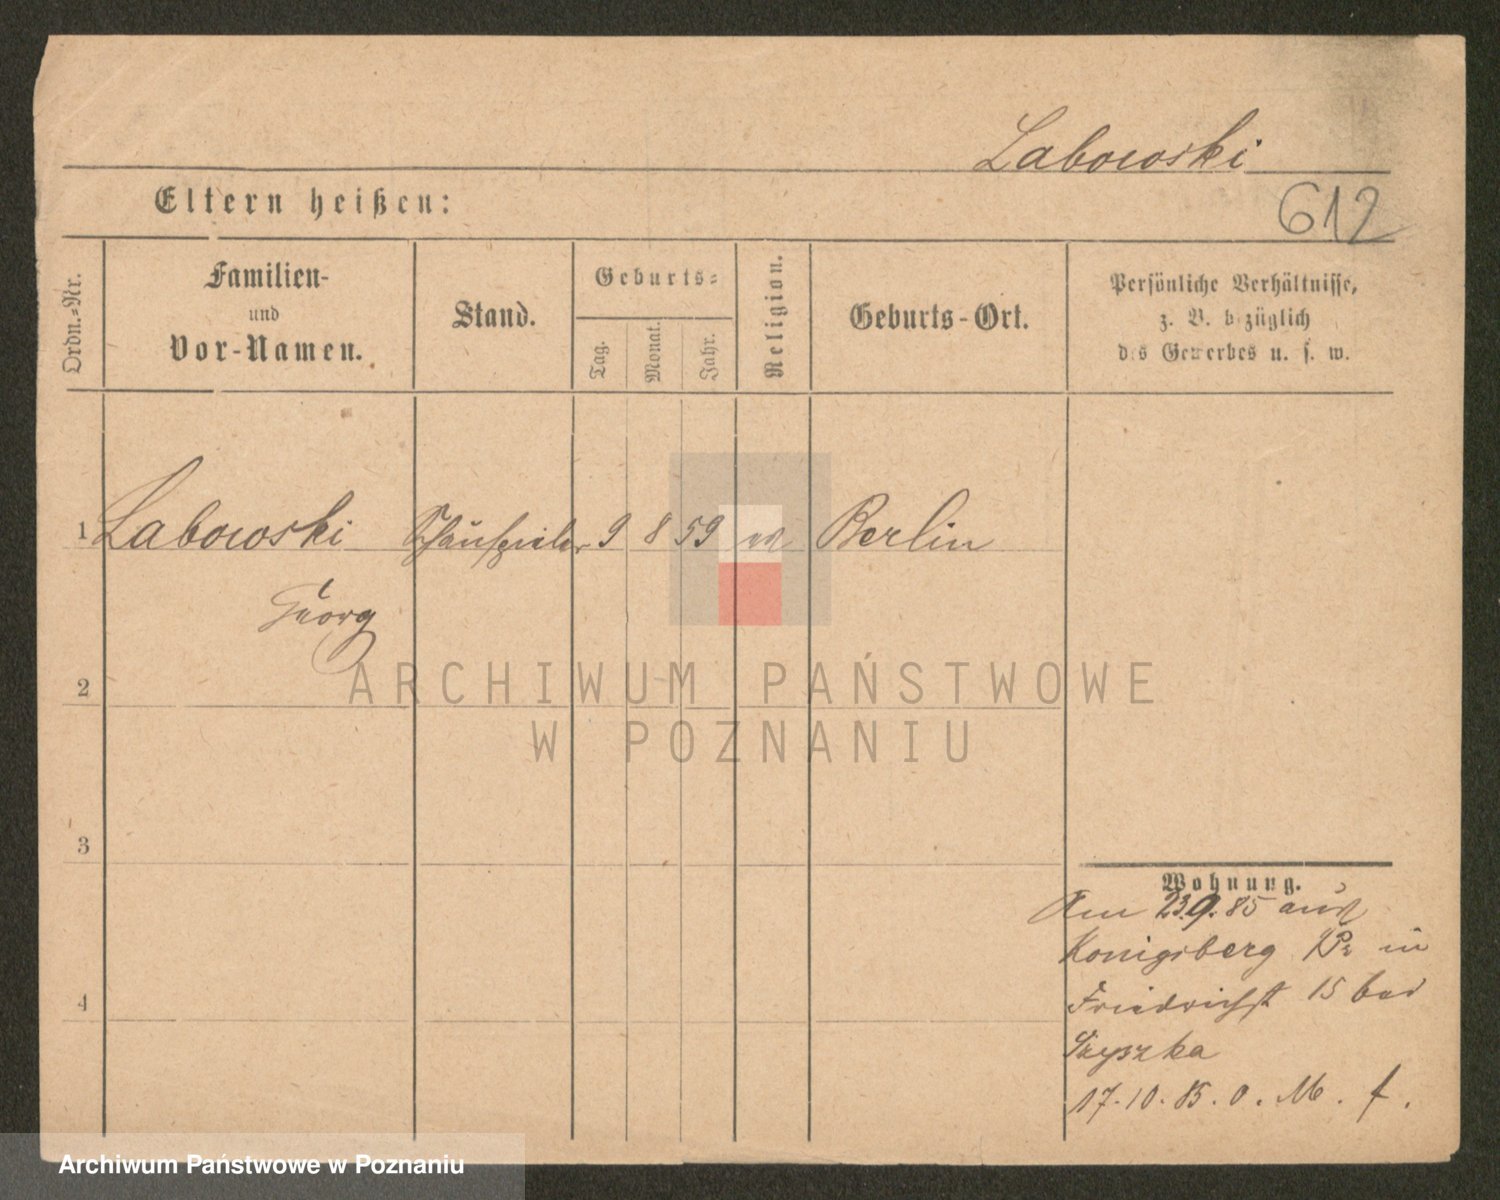 Labowski
Eltern heißen:
612
Ordn.-Nr.
Familien-
und
Vor-Namen.
Stand.
Geburts-
Tag.
Monat.
Jahr.
Religion.
Geburts-Ort.
Persönliche Verhältnisse,
z. B. bezüglich
des Gewerbes u. s. w.
1 Labowski Schauspieler 9 8 59 Berlin
Georg
2
3
4
Wohnung.
Am 23.9.85 aus
Konigsberg Pr in
Friedrichst 15 bei
17.10.85. o. M. f.
ARCHIWUM PAŃSTWOWE
W POZNANIU
Archiwum Państwowe w Poznaniu